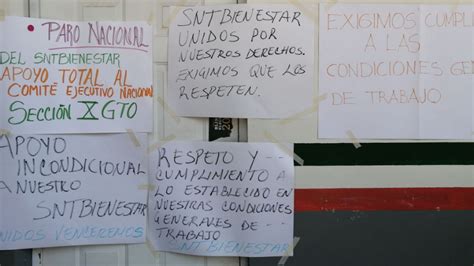 PARO NACIONAL
DEL SNTBIENESTAR
APOYO TOTAL AL
COMITÉ EJECUTIVO NACIONAL
SECCIÓN X GTO
SNTBIENESTAR
UNIDOS POR
NUESTROS DERECHOS.
EXIGIMOS QUE LOS
RESPETEN.
EXIGIMOS CUMPLI
A LAS
CONDICIONES GE
DE TRABAJO
APOYO
INCONDICIONAL
A NUESTRO
SNTBIENESTAR
UNIDOS VENCEREMOS
RESPETO Y
CUMPLIMIENTO A
A LO ESTABLECIDO EN
NUESTRAS CONDICIONES
GENERALES DE
TRABAJO
SNTBIENESTAR